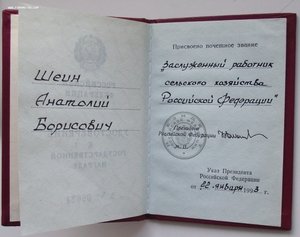 Шеин
Анатолий
Борисович
Присвоено почетное звание
"Заслуженный работник
сельского хозяйства
Российской Федерации"
Президент
Российской Федерации
М.П.
Указ Президента
Российской Федерации
от 22 января 1993 г.